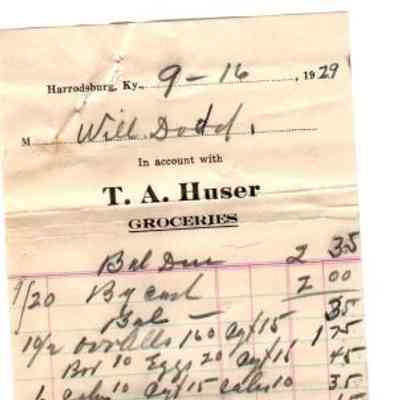 Harrodsburg, Ky., 9-16, 1929
M Will Dodd.
In account with
T. A. Huser
GROCERIES
Bal Due 2 35
9/20 By cash 2 00
Bal — 35
10/2 overalls 160 15 1 75
10 Eggs 20 15 45
10 15 10 35